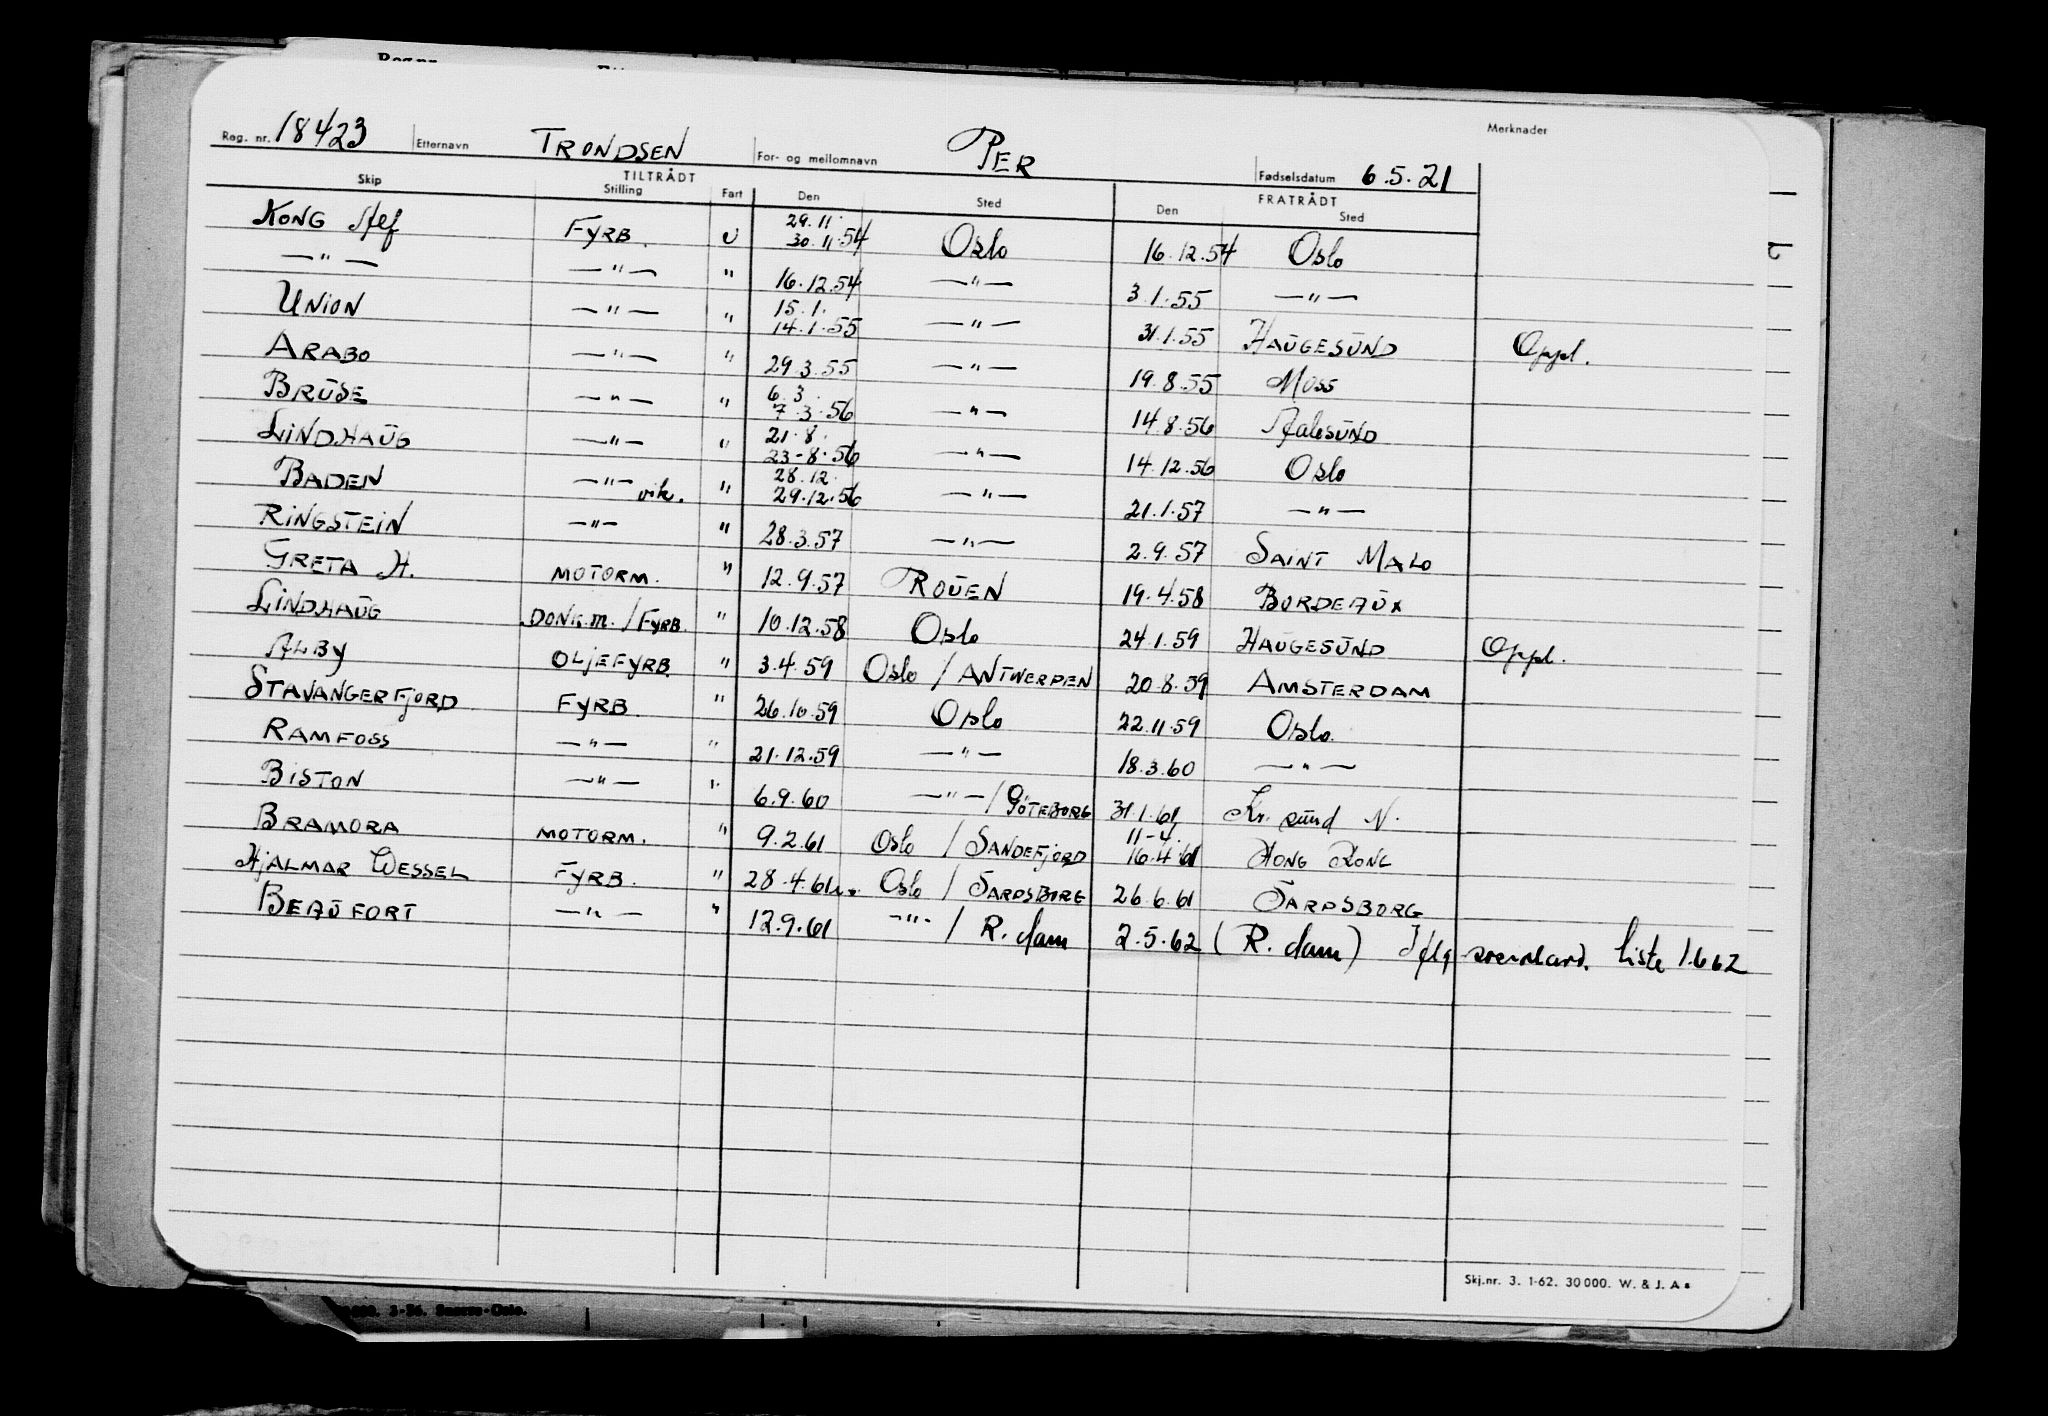 Reg. nr. 18423 Etternavn TRONDSEN For- og mellomnavn PER Fødselsdatum 6.5.21 Merknader
TILTRÅDT FRATRÅDT
Skip Stilling Fart Den Sted Den Sted
KONG Alf FYRB. U 29.11. 30.11.54 Oslo 16.12.54 Oslo
—"— —"— " 16.12.54 —"— 3.1.55 —"—
UNION —"— " 15.1. 14.1.55 —"— 31.1.55 HAUGESUND Oppl.
ARABO —"— " 29.3.55 —"— 19.8.55 Moss
BRUSE —"— " 6.3. 7.3.56 —"— 14.8.56 AalesUND
LINDHAUG —"— " 21.8. 23-8.56 —"— 14.12.56 Oslo
BADEN —"— vik. " 28.12. 29.12.56 —"— 21.1.57 —"—
RINGSTEIN —"— " 28.3.57 —"— 2.9.57 SAINT MALO
GRETA H. MOTORM. " 12.9.57 ROUEN 19.4.58 BORDEAUX
LINDHAUG DONK.M./FYRB. " 10.12.58 Oslo 24.1.59 HAUGESUND Oppl.
ALBY OLJEFYRB. " 3.4.59 Oslo / ANTWERPEN 20.8.59 AMSTERDAM
STAVANGERFJORD FYRB. " 26.10.59 Oslo 22.11.59 Oslo.
RAMFOSS —"— " 21.12.59 —"— 18.3.60 —"—
BISTON —"— " 6.9.60 —"—/GÖTEBORG 31.1.61 Kr. sund N.
BRAMORA MOTORM. " 9.2.61 Oslo / SANDEFJORD 11-4. 16.4.61 HONG KONG
HJALMAR WESSEL FYRB. " 28.4.61 Oslo / SARPSBORG 26.6.61 SARPSBORG
BEAUFORT —"— " 12.9.61 —"— / R.dam 2.5.62 (R.dam) Iflg liste 1.6.62
Skj.nr. 3. 1-62. 30 000. W. & J. A s
000. 3-56. Oslo.